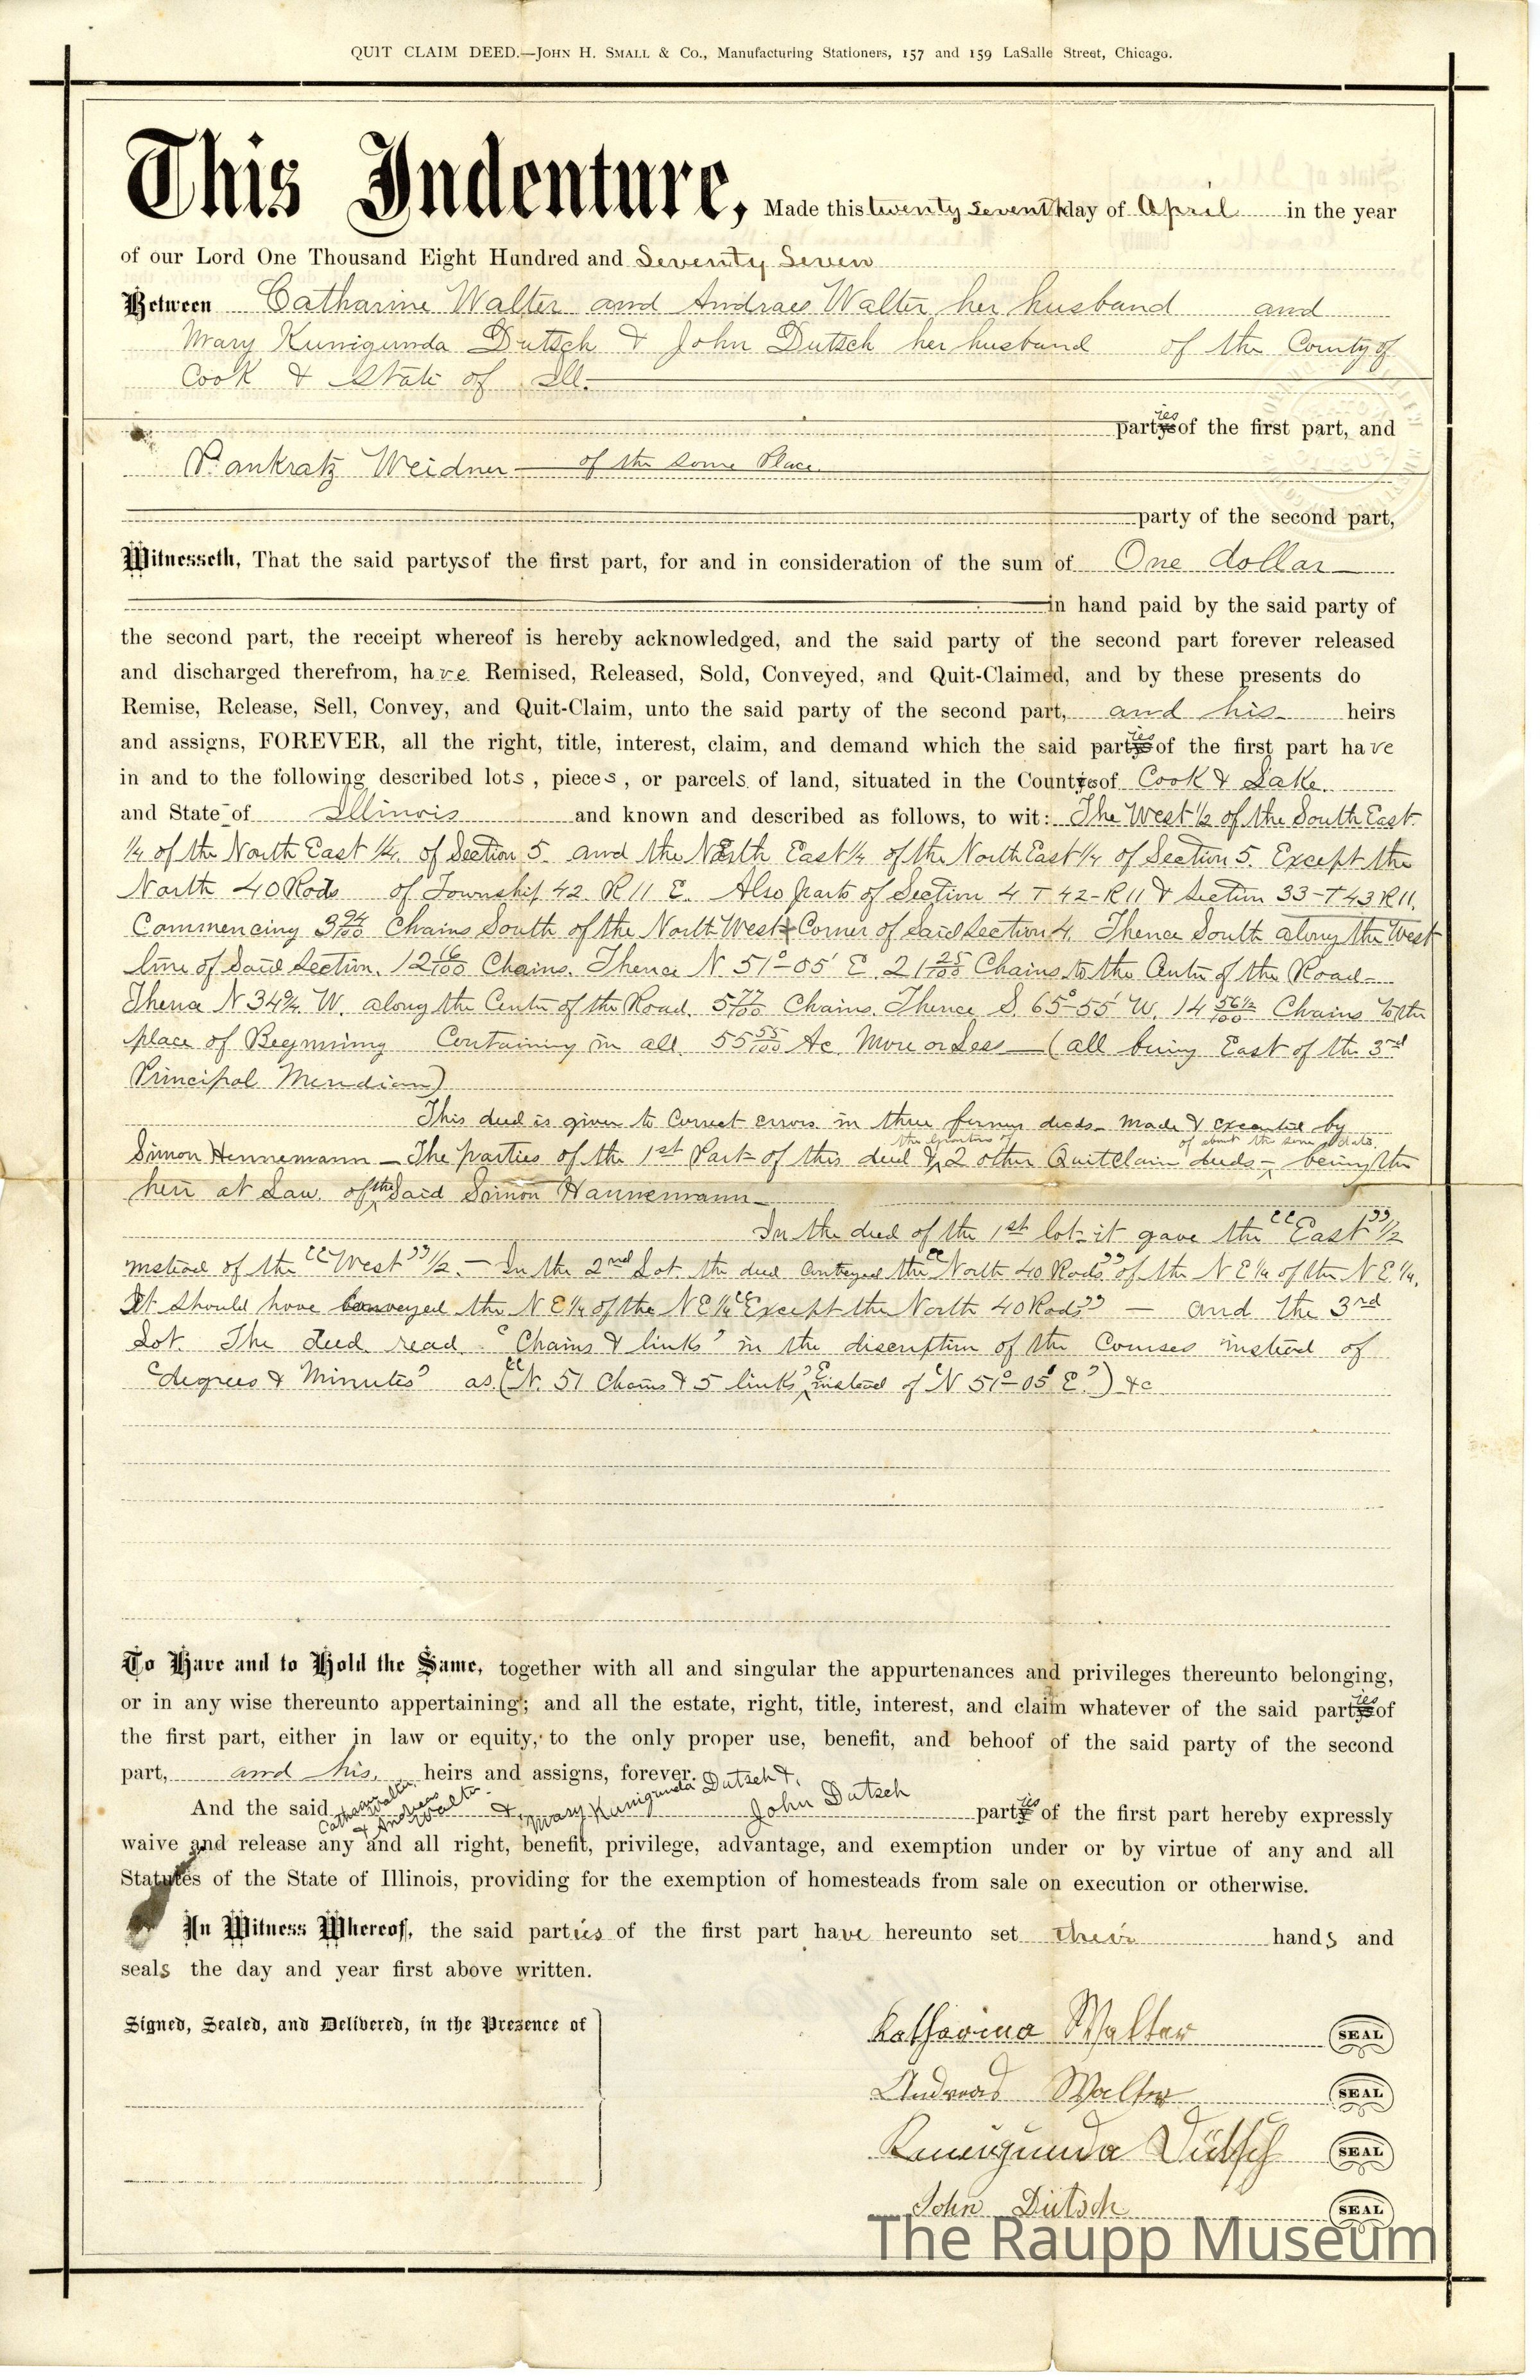 QUIT CLAIM DEED.—JOHN H. SMALL & CO., Manufacturing Stationers, 157 and 159 LaSalle Street, Chicago.
This Indenture, Made this twenty seventh day of April in the year
of our Lord One Thousand Eight Hundred and Seventy Seven
Between Catharine Walter and Andraes Walter her husband and
Mary Kunigunda Dutsch & John Dutsch her husband of the County of
Cook & State of Ill.
parties of the first part, and
Pankratz Weidner of the same Place.
party of the second part,
Witnesseth, That the said partys of the first part, for and in consideration of the sum of One dollar
in hand paid by the said party of
the second part, the receipt whereof is hereby acknowledged, and the said party of the second part forever released
and discharged therefrom, have Remised, Released, Sold, Conveyed, and Quit-Claimed, and by these presents do
Remise, Release, Sell, Convey, and Quit-Claim, unto the said party of the second part, and his heirs
and assigns, FOREVER, all the right, title, interest, claim, and demand which the said parties of the first part have
in and to the following described lots, pieces, or parcels of land, situated in the Counties of Cook & Lake.
and State of Illinois and known and described as follows, to wit: The West 1/2 of the South East
1/4 of the North East 1/4. of Section 5. and the North East 1/4 of the North East 1/4 of Section 5. Except the
North 40 Rods of Township 42 R 11 E. Also parts of Section 4 T 42-R 11 & Section 33-T 43 R 11.
Commencing 3 94/100 Chains South of the North West Corner of said Section 4. Thence South along the West
line of Said Section. 12 66/100 Chains. Thence N. 51°-05' E. 21 25/100 Chains to the Center of the Road-
Thence N 34 3/4. W. along the Center of the Road. 5 77/100 Chains. Thence S. 65°-55' W. 14 56 1/2/100 Chains to the
place of Beginning Containing in all. 55 55/100 Ac. More or Less — (all being East of the 3rd
Principal Meridian)
This deed is given to Correct errors in three former deeds - made & executed by
the Grantors of of about the same date.
Simon Hennemann — The parties of the 1st Part of this deed & 2 other Quit claim deeds - being the
heir at Law. of the Said Simon Hannemann —
In the deed of the 1st lot it gave the "East" 1/2
instead of the "West" 1/2. — In the 2nd Lot. the deed conveyed the "North 40 Rods" of the N E 1/4 of the N E 1/4.
It should have conveyed the N E 1/4 of the N E 1/4 "Except the North 40 Rods" — and the 3rd
Lot. The deed read. "Chains & links" in the discription of the Courses instead of
"degrees & Minutes" as ("N. 51 Chains & 5 links" E instead of "N 51°-05' E.") &c
To Have and to Hold the Same, together with all and singular the appurtenances and privileges thereunto belonging,
or in any wise thereunto appertaining; and all the estate, right, title, interest, and claim whatever of the said parties of
the first part, either in law or equity, to the only proper use, benefit, and behoof of the said party of the second
part, and his, heirs and assigns, forever.
And the said Catharine Walter & Andreas Walter & Mary Kunigunda Dutsch & John Dutsch parties of the first part hereby expressly
waive and release any and all right, benefit, privilege, advantage, and exemption under or by virtue of any and all
Statutes of the State of Illinois, providing for the exemption of homesteads from sale on execution or otherwise.
In Witness Whereof, the said parties of the first part have hereunto set their hands and
seals the day and year first above written.
Signed, Sealed, and Delivered, in the Presence of
Katharina Walter SEAL
Andreas Walter SEAL
Kunigunda Dütsch SEAL
John Dütsch SEAL
The Raupp Museum